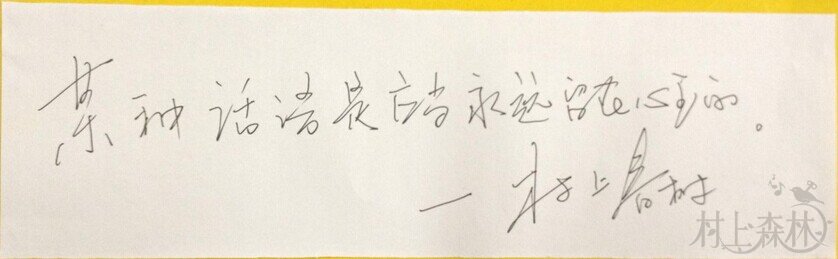 某种话语是应当永远留在心里的。
— 村上春树
村上森林